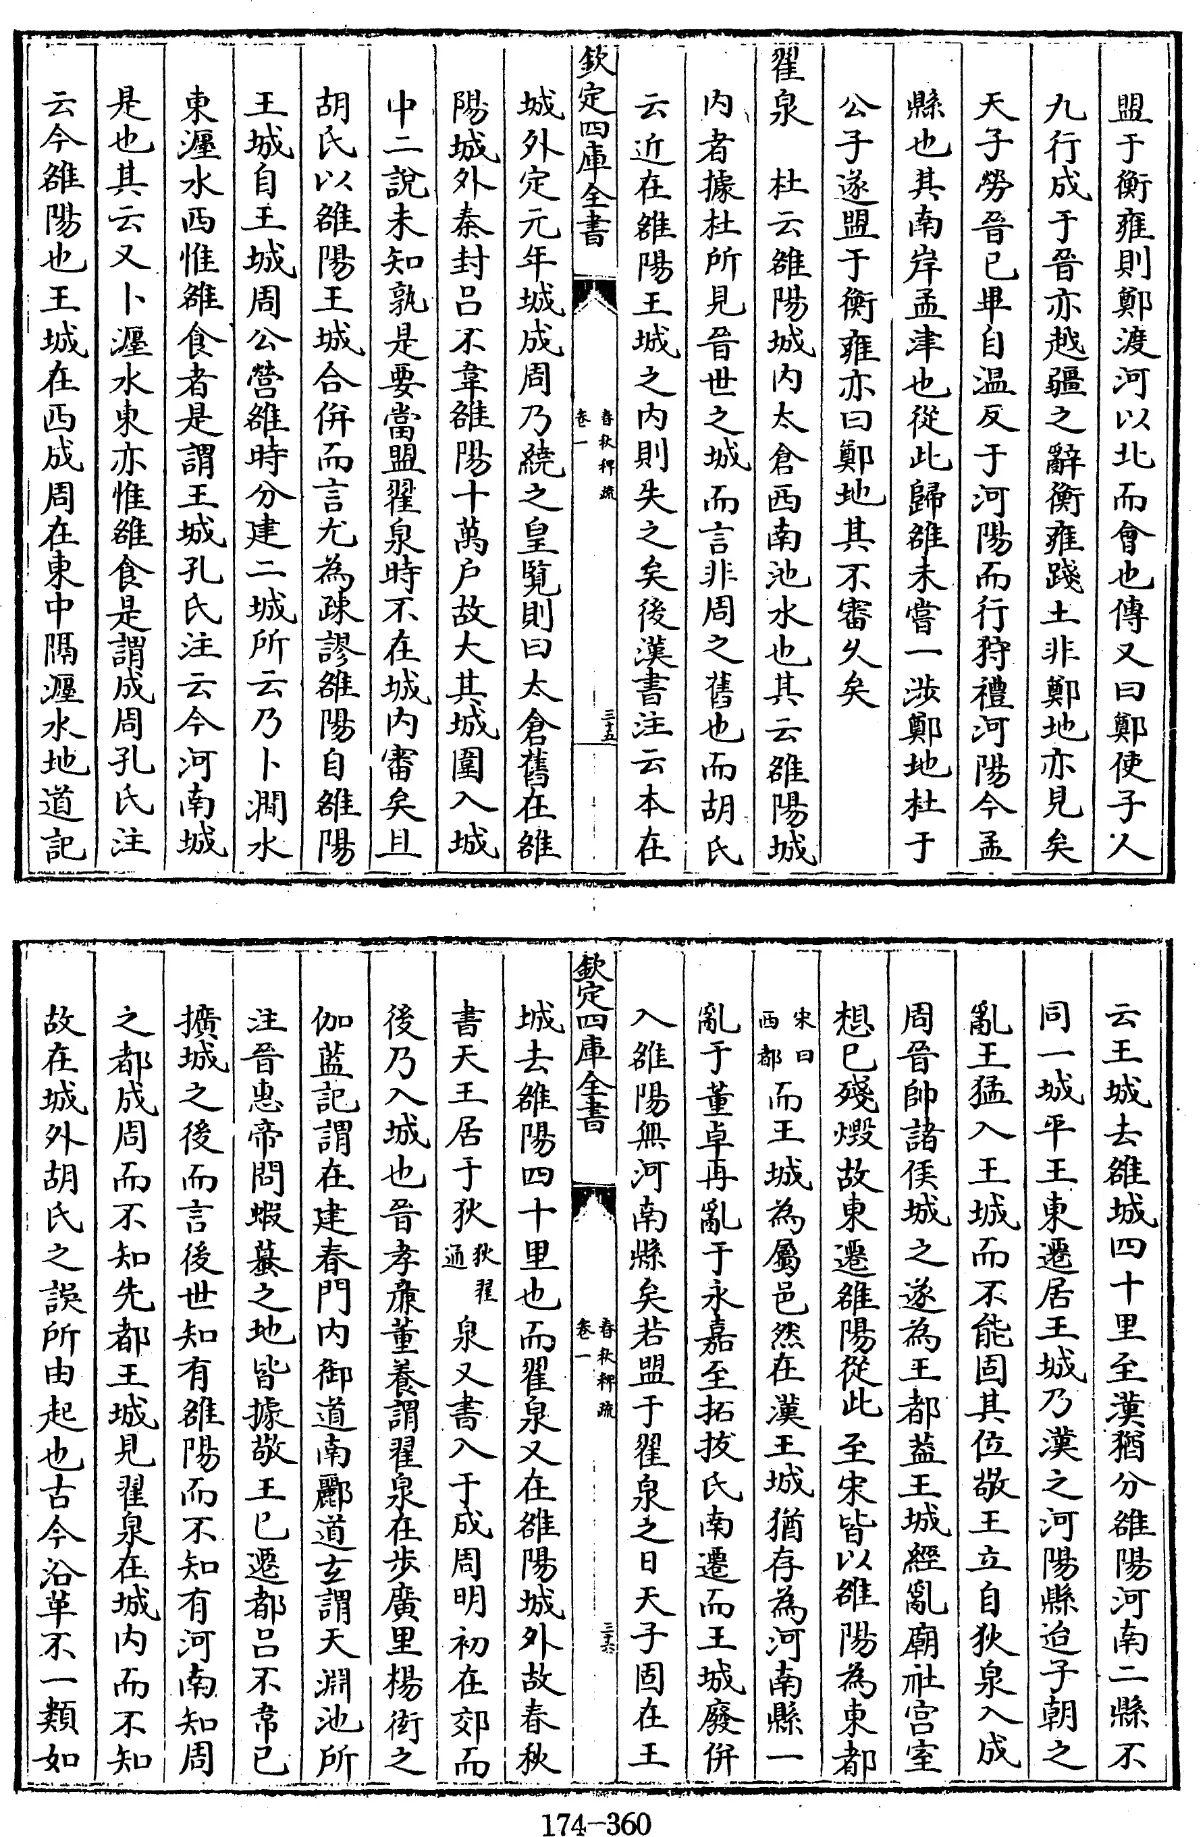 盟于衡雍則鄭渡河以北而會也傳又曰鄭使子人
九行成于晉亦越疆之辭衡雍踐土非鄭地亦見矣
天子勞晉已畢自温反于河陽而行狩禮河陽今孟
縣也其南岸孟津也從此歸雒未嘗一涉鄭地杜于
公子遂盟于衡雍亦曰鄭地其不審乆矣
翟泉　杜云雒陽城内太倉西南池水也其云雒陽城
内者據杜所見晉世之城而言非周之舊也而胡氏
云近在雒陽王城之内則失之矣後漢書注云本在
欽定四庫全書
春秋稗疏
卷一
三十五
城外定元年城成周乃繞之皇覽則曰太倉舊在雒
陽城外秦封呂不韋雒陽十萬户故大其城圍入城
中二說未知孰是要當盟翟泉時不在城内審矣且
胡氏以雒陽王城合併而言尤為疎謬雒陽自雒陽
王城自王城周公營雒時分建二城所云乃卜澗水
東瀍水西惟雒食者是謂王城孔氏注云今河南城
是也其云又卜瀍水東亦惟雒食是謂成周孔氏注
云今雒陽也王城在西成周在東中隔瀍水地道記
云王城去雒城四十里至漢猶分雒陽河南二縣不
同一城平王東遷居王城乃漢之河陽縣迨子朝之
亂王猛入王城而不能固其位敬王立自狄泉入成
周晉帥諸侯城之遂為王都葢王城經亂廟社宫室
想已殘燬故東遷雒陽從此至宋皆以雒陽為東都
宋曰西都而王城為屬邑然在漢王城猶存為河南縣一
亂于董卓再亂于永嘉至拓拔氏南遷而王城廢併
入雒陽無河南縣矣若盟于翟泉之日天子固在王
欽定四庫全書
春秋稗疏
卷一
三十六
城去雒陽四十里也而翟泉又在雒陽城外故春秋
書天王居于狄狄翟通泉又書入于成周明初在郊而
後乃入城也晉孝廉董養謂翟泉在步廣里楊衒之
伽藍記謂在建春門内御道南酈道玄謂天淵池所
注晉惠帝問蝦蟇之地皆據敬王已遷都吕不韋已
擴城之後而言後世知有雒陽而不知有河南知周
之都成周而不知先都王城見翟泉在城内而不知
故在城外胡氏之誤所由起也古今沿革不一類如
174-360